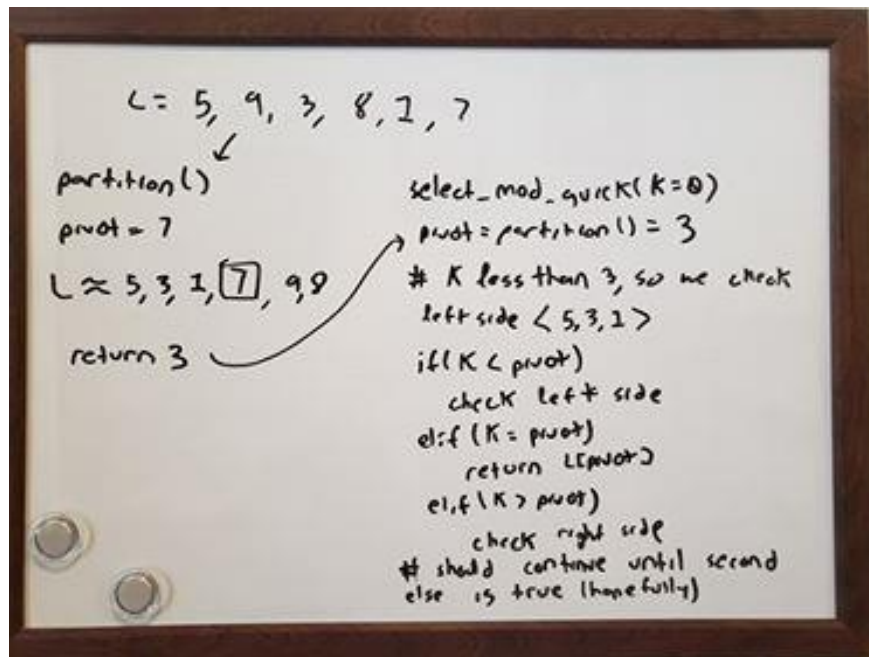 L = 5, 9, 3, 8, 1, 7
partition()
pivot = 7
L ≈ 5, 3, 1, 7, 9, 8
return 3
select_mod_quick(K=0)
pivot = partition() = 3
# K less than 3, so we check
left side < 5, 3, 1 >
if(K < pivot)
check left side
elif (K = pivot)
return L[pivot]
elif (K > pivot)
check right side
# should continue until second
else is true (hopefully)